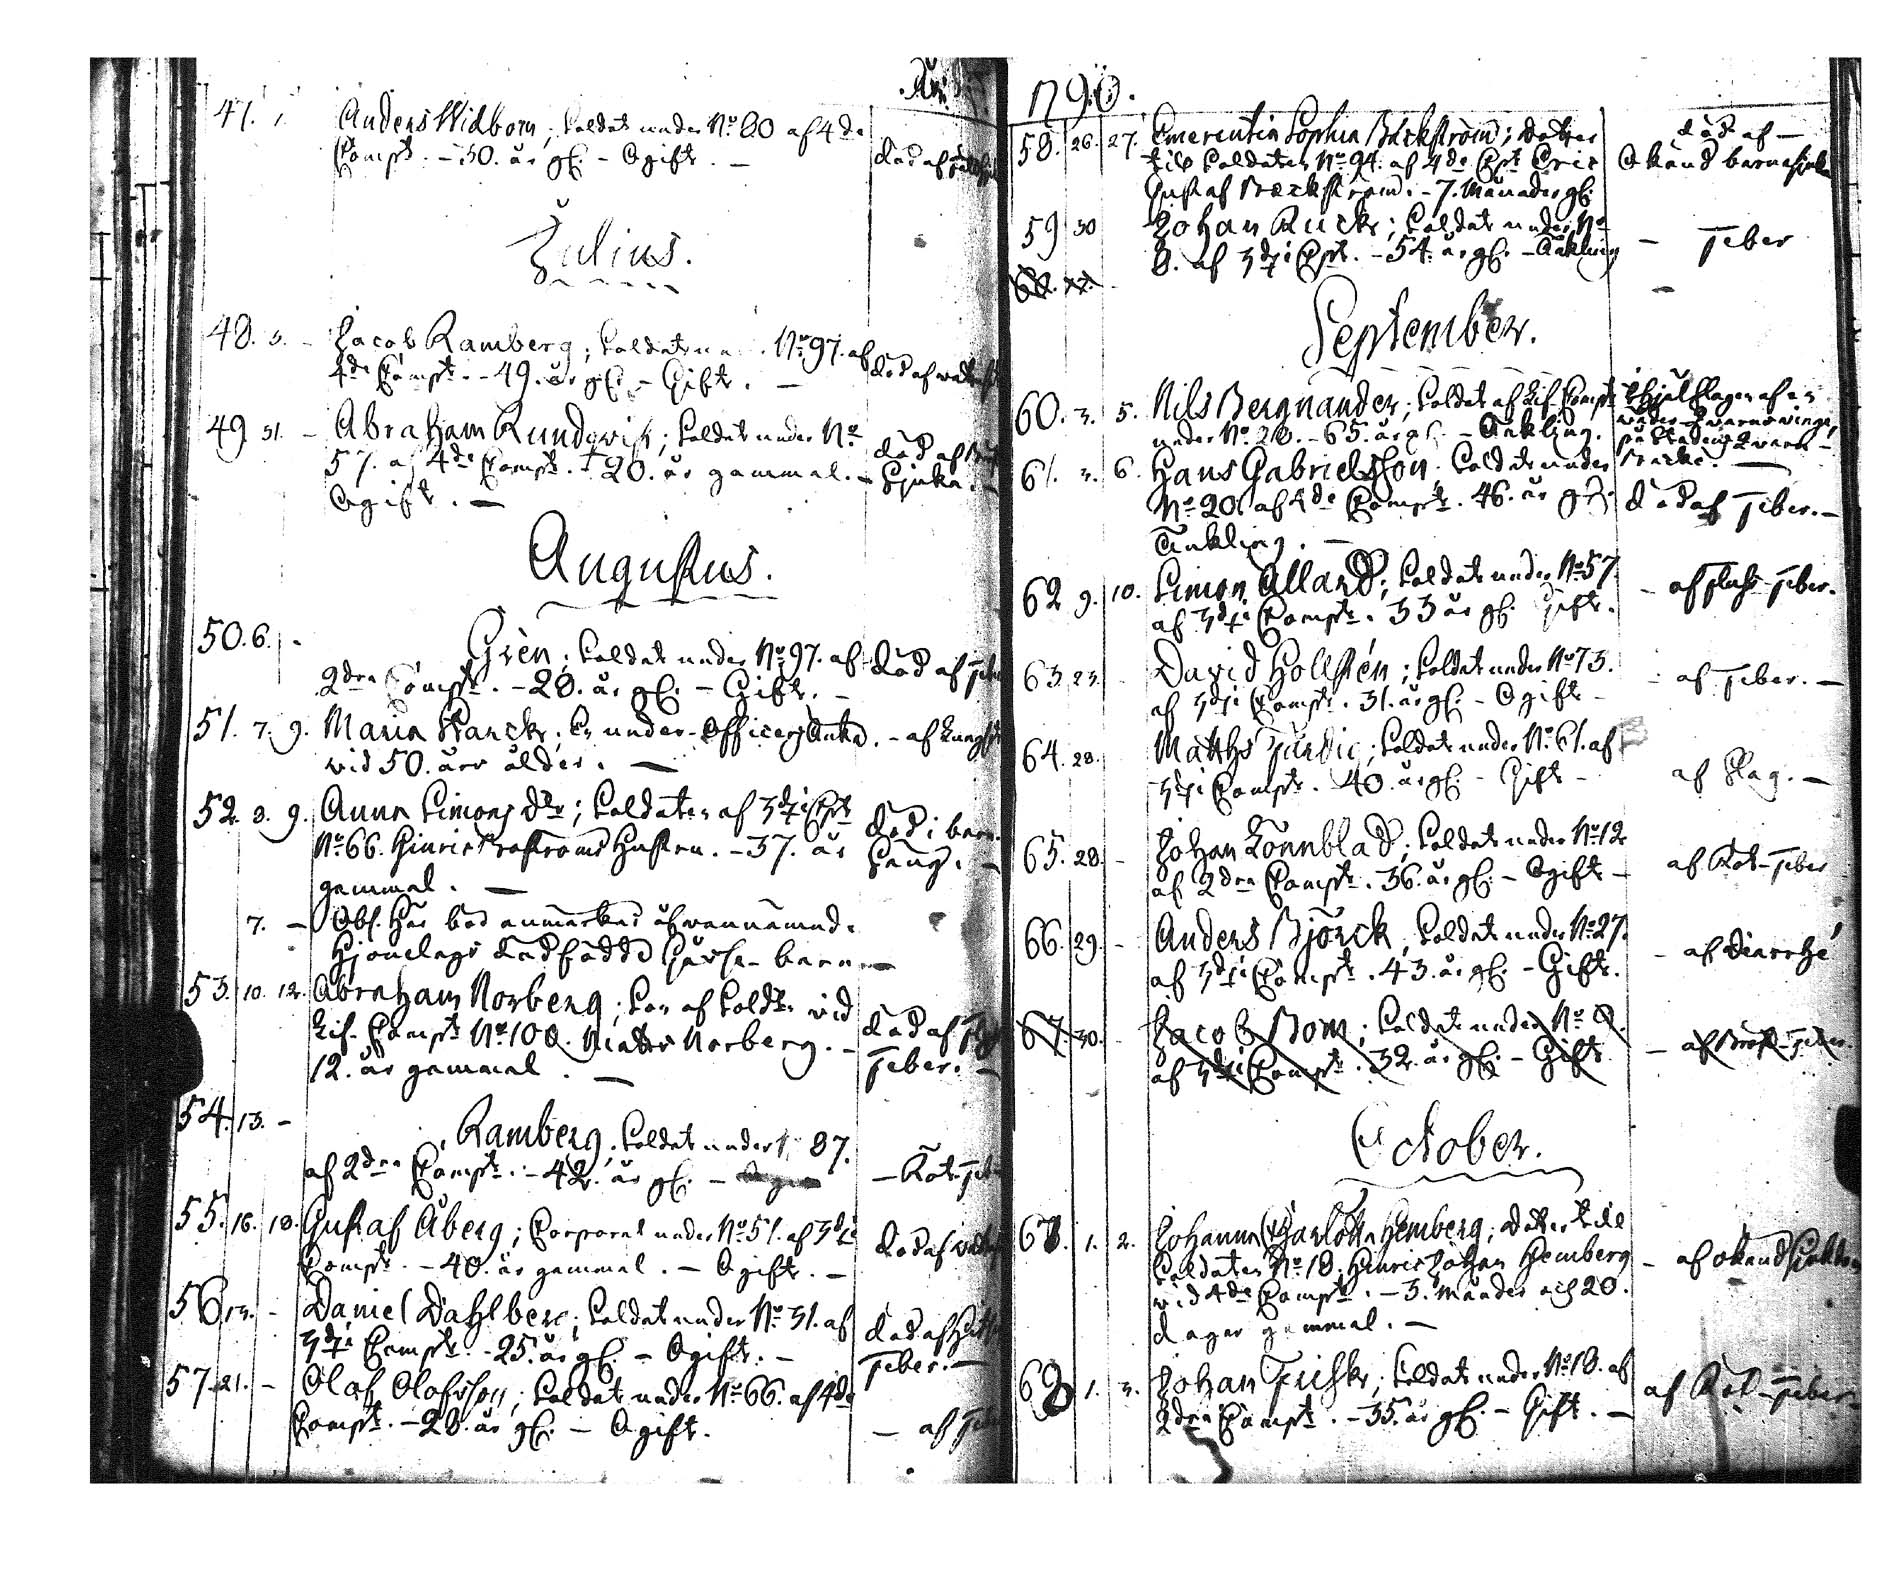 År 1790.
47. 1. Anders Widbom; Soldat under No 80 af 4de
Comp. - 30. år gl. - Ogift. - Död af
Julius.
48. 3. - Jacob Ramberg; Soldat No 97. af
4de Comp. - 49. år gl. - Gift. - död af
49 31. - Abraham Rundqvist; Soldat under No
57. af 4de Comp. - 20. år gammal. -
Ogift. - död af
Sjuka. -
Augustus.
50. 6. - Grén; Soldat under No 97. af
2dra Comp. - 28. år gl. - Gift. - död af
51. 7. 9. Maria Starck; En under-officers Enka. - af
vid 50. års ålder. -
52. 8. 9. Anna Simons dr; Soldaten af 3dje Cpt
No 66. Hinric Hustru. - 37. år
gammal. - död i barn
säng. -
7. - Obs. Här bör anmärkas ofwannämnde
Hjonelags dödfödde barn -
53. 10. 12. Abraham Norberg; Son af Soldn vid
Lif-Comp No 100. Norberg. -
12. år gammal. - död af
Feber. -
54. 13. - Ramberg; Soldat under 87.
af 2dra Comp. - 42. år gl. - - Röt-
55. 16. 18. Gustaf Åberg; Corporal under No 51. af 3dje
Comp. - 40. år gammal. - Ogift. - död af
56 - Daniel Dahlberg; Soldat under No 31. af
3dje Comp. - 25. år gl. - Ogift. - död af
Feber. -
57. 21. - Olof Olofsson; Soldat under No 66. af 4de
Comp. - 28. år gl. - Ogift. - af
58. 26. 27. Emerentia Sophia Bäckström; Dotter
till Soldaten No 94. af 4de Cpt Eric
Gustaf Bäckström. - 7. Månader gl. död af -
Okänd barnasjuka
59 30 Johan Ruck; Soldat under No
8. af 3dje Cpt. - 54. år gl. - Änkling - Feber
September.
60. 3. 5. Nils Bergnander; Soldat af Lif Comp
under No 28. - 65. år gl. - Änkling. ihjälslagen af en
61. 3. 6. Hans Gabrielsson; Soldat under
No 20. af 4de Comp. 46. år gl.
Änkling. - död af Feber. -
62 9. 10. Simon Alland; Soldat under No 57
af 3dje Comp. 33 år gl. Gift. - af Feber.
63. 23. David Hollstén; Soldat under No 73.
af 3dje Comp. 31. år gl. - Ogift - - af Feber. -
64. 28. Matths Jurdic; Soldat under No 61. af
3dje Comp. 40. år gl. - Gift - af Slag. -
65. 28. - Johan Lönnblad; Soldat under No 12
af 2dra Comp. 36. år gl. - Ogift - af Röt-Feber
66. 29. - Anders Björck; Soldat under No 27.
af 3dje Comp. 43. år gl. - Gift. - af diarrhé
67. 30. - Jacob Bom; Soldat under No 8.
af 3dje Comp. 32. år gl. - Gift - af Bröst-Feber.
October.
67. 1. 2. Johanna Charlotta Hemberg; Dotter till
Soldaten No 18. Hinric Johan Hemberg
vid 4de Comp. - 3. månader och 20.
dagar gammal. - - af okänd Sjukdom
68 1. 3. Johan Frisk; Soldat under No 18. af
2dra Comp. - 35. år gl. - Gift. - af Röt-Feber -